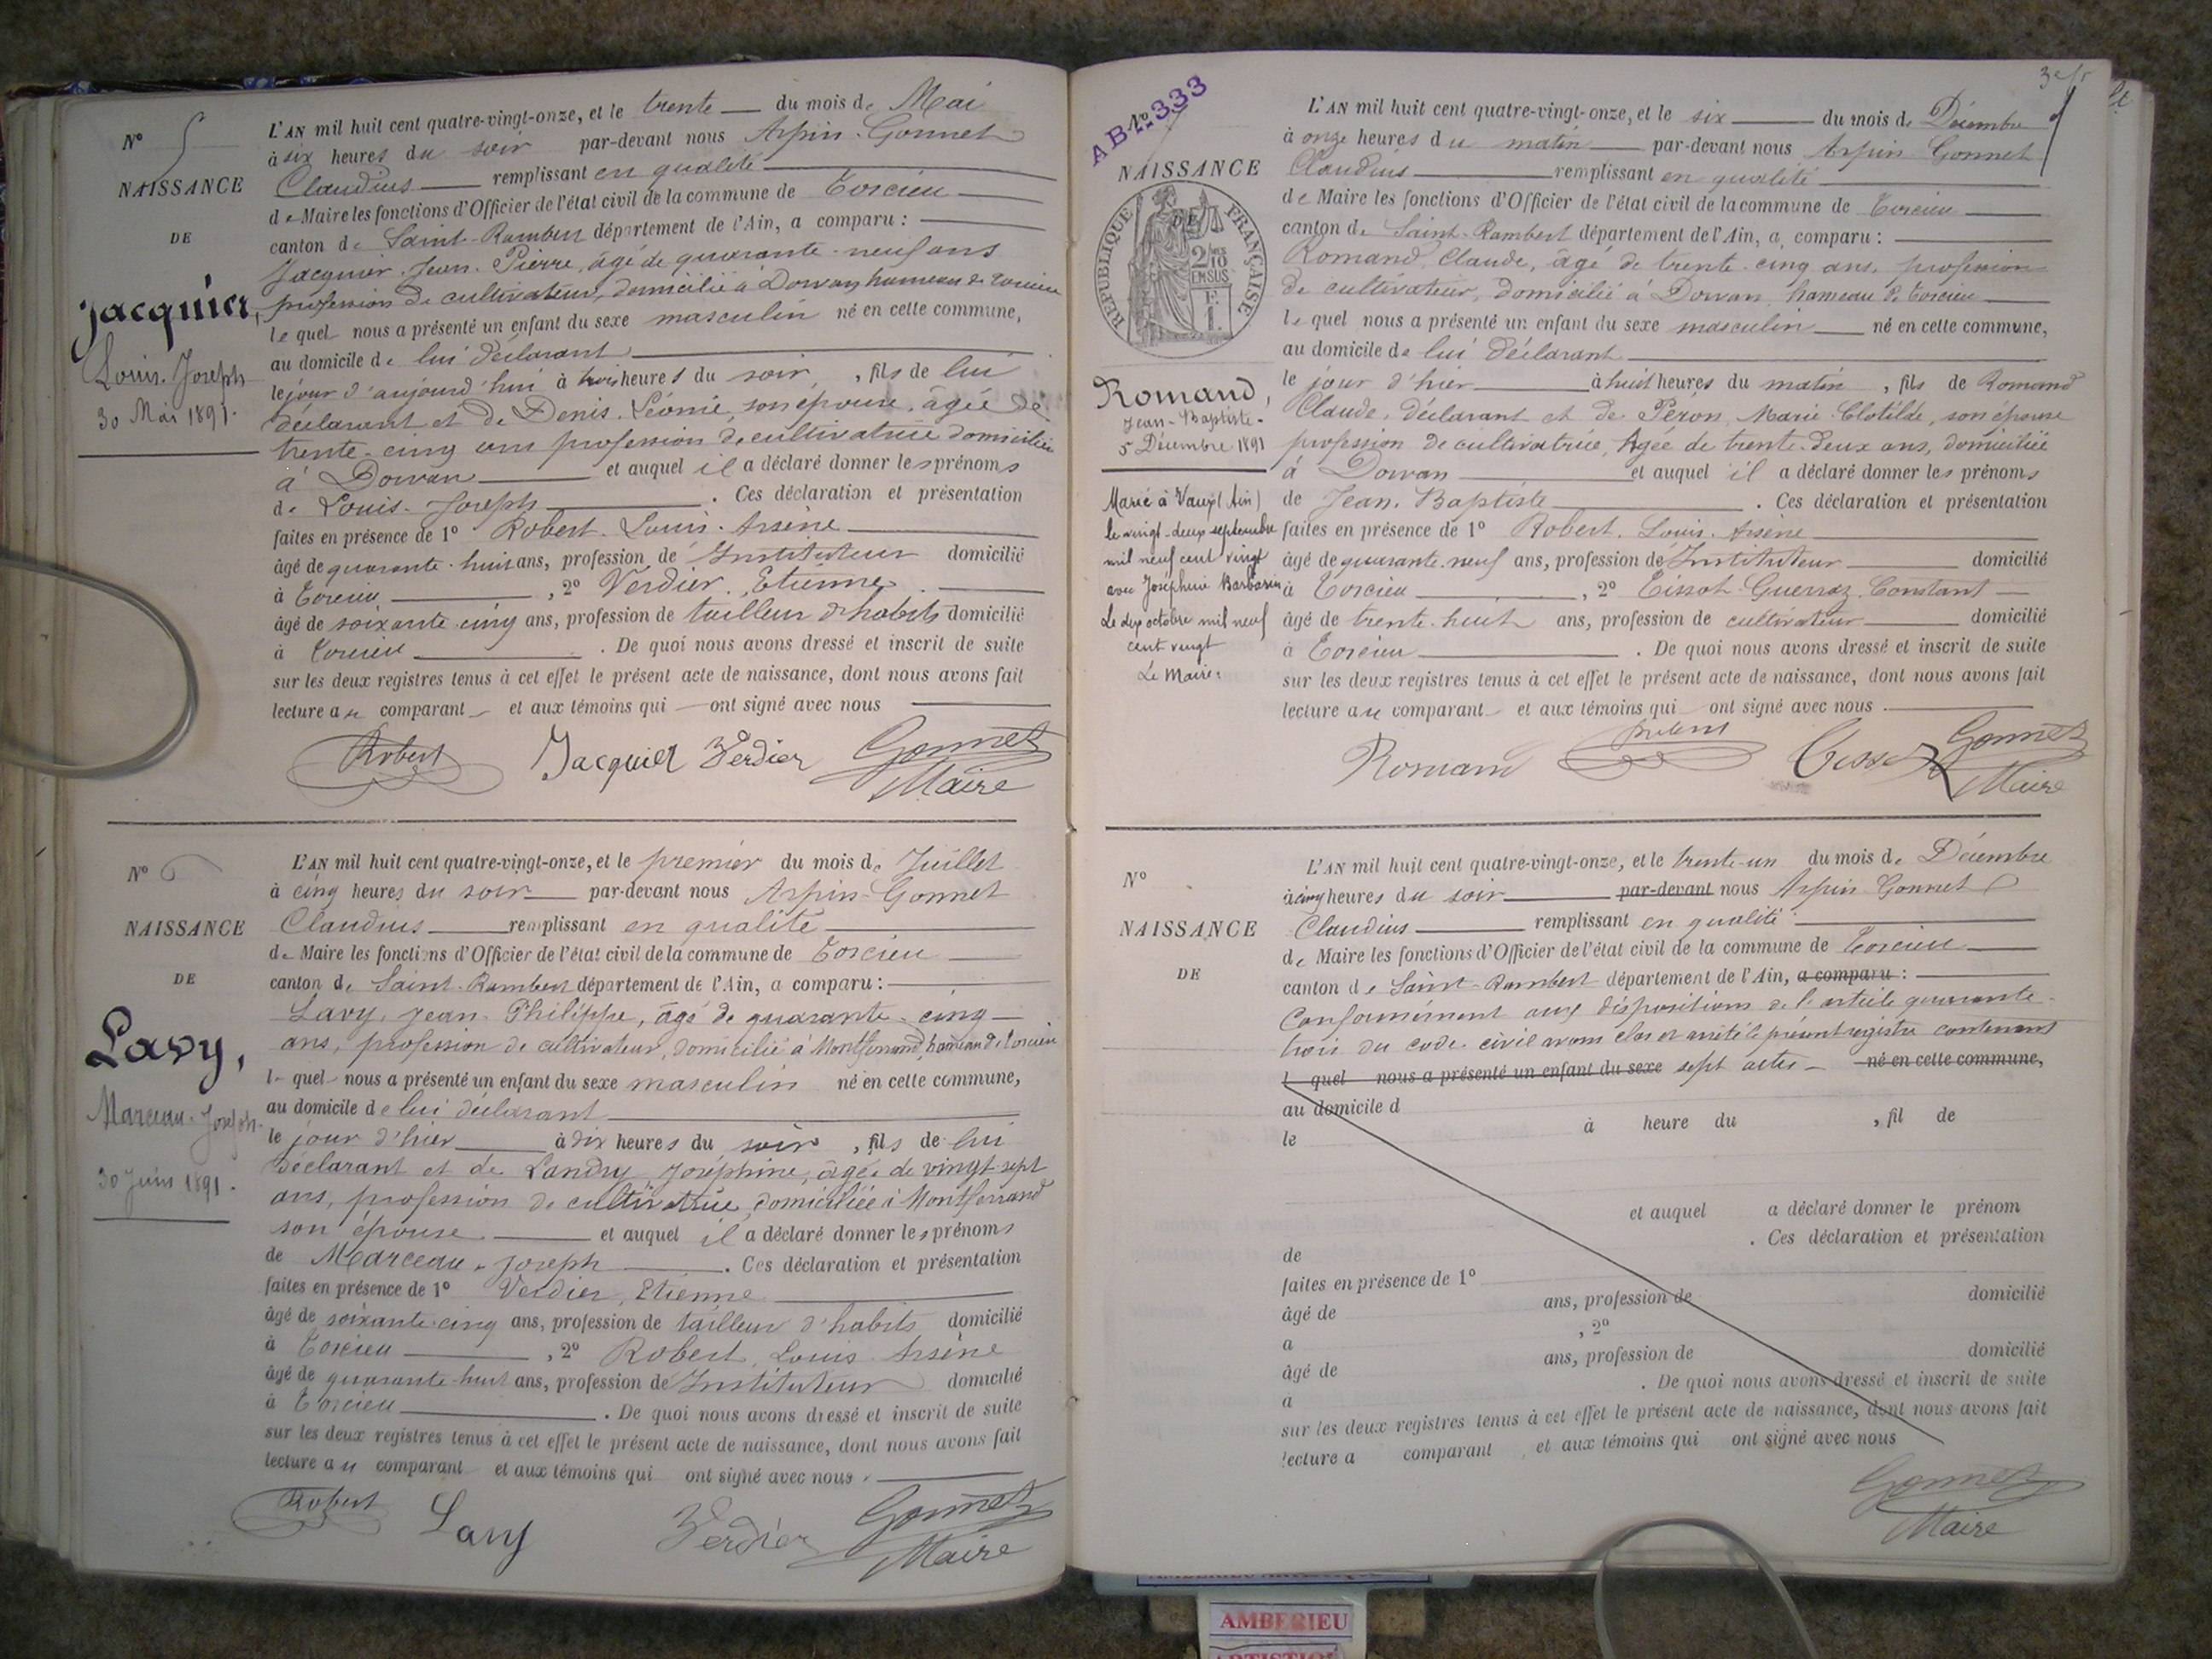 N° 5
NAISSANCE
DE
Jacquier,
Louis-Joseph
30 Mai 1891.
L'AN mil huit cent quatre-vingt-onze, et le trente du mois de Mai
à six heures du soir par-devant nous Arpin-Gonnet
Claudius remplissant en qualité
de Maire les fonctions d'Officier de l'état civil de la commune de Torcieu
canton de Saint-Rambert département de l'Ain, a comparu :
Jacquier Jean-Pierre, âgé de quarante-neuf ans
profession de cultivateur, domicilié à Dorvan hameau de Torcieu
lequel nous a présenté un enfant du sexe masculin né en cette commune,
au domicile de lui déclarant
le jour d'aujourd'hui à trois heures du soir, fils de lui
déclarant et de Denis Léonie, son épouse, âgée de
trente-cinq ans profession de cultivatrice domiciliée
à Dorvan et auquel il a déclaré donner les prénoms
de Louis-Joseph. Ces déclaration et présentation
faites en présence de 1° Robert Louis-Arsène
âgé de quarante-huit ans, profession de Instituteur domicilié
à Torcieu, 2° Verdier, Etienne
âgé de soixante-cinq ans, profession de tailleur d'habits domicilié
à Torcieu. De quoi nous avons dressé et inscrit de suite
sur les deux registres tenus à cet effet le présent acte de naissance, dont nous avons fait
lecture au comparant et aux témoins qui ont signé avec nous
Robert Jacquier Verdier Gonnet
Maire
N° 6
NAISSANCE
DE
Lavy,
Marceau-Joseph
30 Juin 1891.
L'AN mil huit cent quatre-vingt-onze, et le premier du mois de Juillet
à cinq heures du soir par-devant nous Arpin-Gonnet
Claudius remplissant en qualité
de Maire les fonctions d'Officier de l'état civil de la commune de Torcieu
canton de Saint-Rambert département de l'Ain, a comparu :
Lavy, Jean-Philippe, âgé de quarante-cinq
ans, profession de cultivateur, domicilié à Montferrand, hameau de Torcieu
lequel nous a présenté un enfant du sexe masculin né en cette commune,
au domicile de lui déclarant
le jour d'hier à dix heures du soir, fils de lui
déclarant et de Landry, Joséphine, âgée de vingt-sept
ans, profession de cultivatrice, domiciliée à Montferrand
son épouse et auquel il a déclaré donner les prénoms
de Marceau-Joseph. Ces déclaration et présentation
faites en présence de 1° Verdier, Etienne
âgé de soixante-cinq ans, profession de tailleur d'habits domicilié
à Torcieu, 2° Robert, Louis-Arsène
âgé de quarante-huit ans, profession de Instituteur domicilié
à Torcieu. De quoi nous avons dressé et inscrit de suite
sur les deux registres tenus à cet effet le présent acte de naissance, dont nous avons fait
lecture au comparant et aux témoins qui ont signé avec nous.
Robert Lavy Verdier Gonnet
Maire
AB N° 333
N° 7
NAISSANCE
DE
RÉPUBLIQUE FRANÇAISE
2/10 EN SUS
Romand,
Jean-Baptiste
5 Décembre 1891
Marié à Vaux (Ain)
le vingt-deux septembre
mil neuf cent vingt
avec Joséphine Barbarin
Le dix octobre mil neuf
cent vingt
Le Maire:
L'AN mil huit cent quatre-vingt-onze, et le six du mois de Décembre
à onze heures du matin par-devant nous Arpin-Gonnet
Claudius remplissant en qualité
de Maire les fonctions d'Officier de l'état civil de la commune de Torcieu
canton de Saint-Rambert département de l'Ain, a comparu :
Romand, Claude, âgé de trente-cinq ans, profession
de cultivateur, domicilié à Dorvan, hameau de Torcieu
lequel nous a présenté un enfant du sexe masculin né en cette commune,
au domicile de lui déclarant
le jour d'hier à huit heures du matin, fils de Romand
Claude, déclarant et de Peron, Marie-Clotilde, son épouse
profession de cultivatrice, âgée de trente-deux ans, domiciliée
à Dorvan et auquel il a déclaré donner les prénoms
de Jean-Baptiste. Ces déclaration et présentation
faites en présence de 1° Robert, Louis-Arsène
âgé de quarante-neuf ans, profession de Instituteur domicilié
à Torcieu, 2° Tissot-Guerraz, Constant
âgé de trente-huit ans, profession de cultivateur domicilié
à Torcieu. De quoi nous avons dressé et inscrit de suite
sur les deux registres tenus à cet effet le présent acte de naissance, dont nous avons fait
lecture au comparant et aux témoins qui ont signé avec nous.
Romand Robert Gonnet
Maire
N°
NAISSANCE
DE
L'AN mil huit cent quatre-vingt-onze, et le trente-un du mois de Décembre
à cinq heures du soir par-devant nous Arpin-Gonnet
Claudius remplissant en qualité
de Maire les fonctions d'Officier de l'état civil de la commune de Torcieu
canton de Saint-Rambert département de l'Ain, a comparu :
Conformément aux dispositions de l'article quarante-
trois du code civil avons clos et arrêté le présent registre contenant
l quel nous a présenté un enfant du sexe sept actes né en cette commune,
au domicile d
le à heure du , fil de
et auquel a déclaré donner le prénom
de . Ces déclaration et présentation
faites en présence de 1°
âgé de ans, profession de domicilié
a , 2°
âgé de ans, profession de domicilié
a . De quoi nous avons dressé et inscrit de suite
sur les deux registres tenus à cet effet le présent acte de naissance, dont nous avons fait
lecture a comparant et aux témoins qui ont signé avec nous
Gonnet
Maire
AMBERIEU
ARTISTIQUE